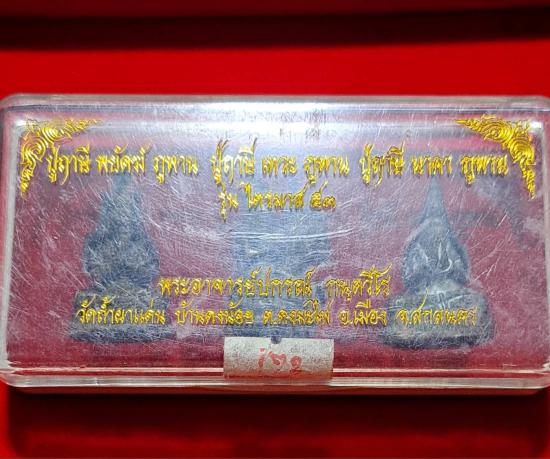 ปู่ฤาษี พยัคฆ์ ภูพาน ปู่ฤาษี เทวะ ภูพาน ปู่ฤาษี นาคา ภูพาน
รุ่น ไตรมาส ๕๓
พระอาจารย์ปกรณ์ กนฺตวีโร
วัดถ้ำผาแด่น บ้านดงน้อย ต.ดงมะไฟ อ.เมือง จ.สกลนคร